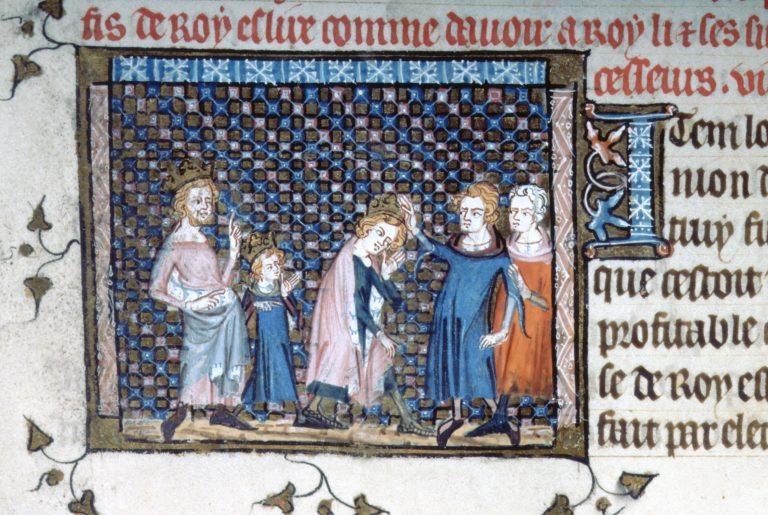 fis de Roy eslire comme dauoir a Roy li ⁊ ses su
cesseurs. vi
Item lo
nion d
puy fu
que cestoit
profitable
se de Roy esl
fait par elec